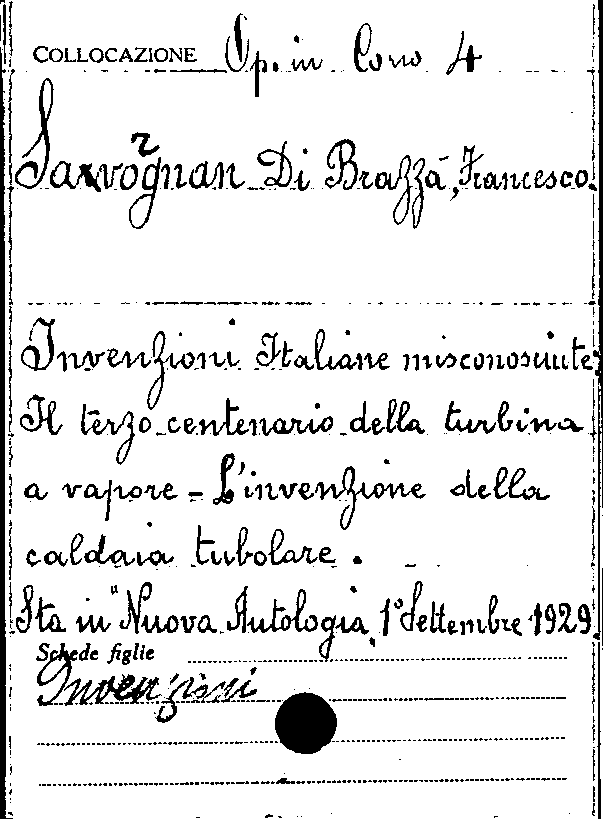 COLLOCAZIONE Op. in Corso 4
Savorgnan Di Brazzà, Francesco.
Invenzioni Italiane misconosciute:
Il terzo centenario della turbina
a vapore - L'invenzione della
caldaia tubolare.
Sta in "Nuova Antologia, 1° Settembre 1929.
Schede figlie
Invenzioni